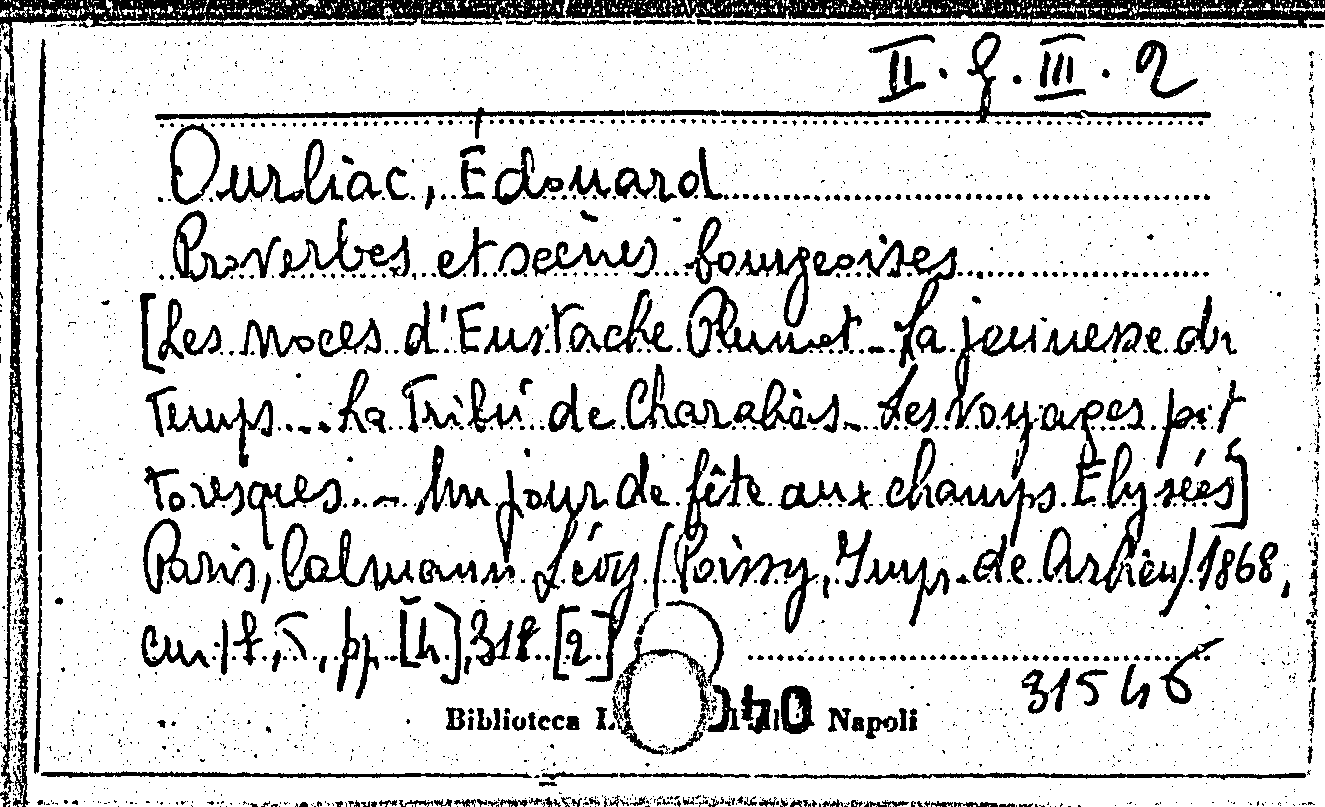 II. g. III. 2
Ourliac, Édouard
Proverbes et scènes bourgeoises.
[Les noces d'Eustache Plumet - La jeunesse du
Temps... La Tribu de Charabas - Les Voyages pit
toresques. - Un jour de fête aux champs Elysées]
Paris, Calmann Lévy (Poissy, Imp. de Arbieu) 1868,
cm. 17,5, pp. [4], 318 [2]
31546
Biblioteca Napoli